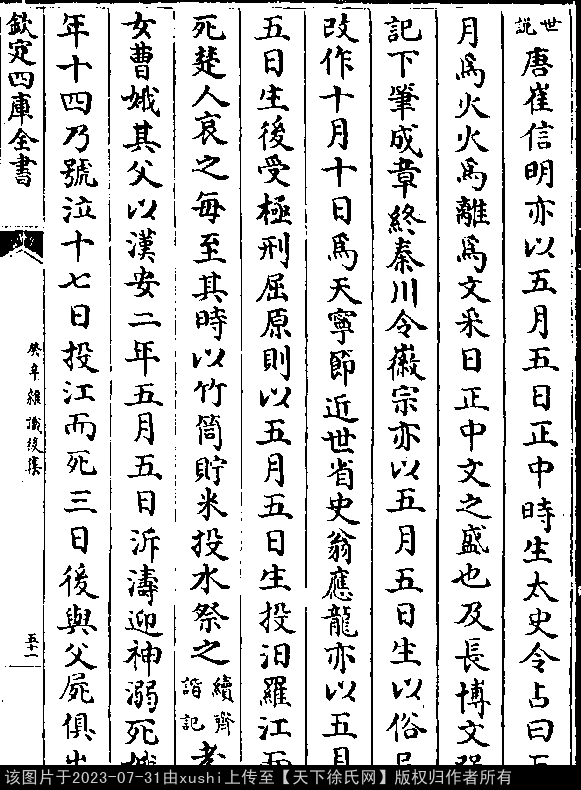 世說唐崔信明亦以五月五日正中時生太史令占曰五
月為火火為離為文采日正中文之盛也及長博文强
記下筆成章終秦川令徽宗亦以五月五日生以俗忌
改作十月十日為天寧節近世省史翁應龍亦以五月
五日生後受極刑屈原則以五月五日生投汨羅江而
死楚人哀之每至其時以竹筒貯米投水祭之續齊諧記孝
女曹娥其父以漢安二年五月五日泝濤迎神溺死娥
年十四乃號泣十七日投江而死三日後與父屍俱出
欽定四庫全書
癸辛雜識後集
五十一
该图片于2023-07-31由xushi上传至【天下徐氏网】版权归作者所有